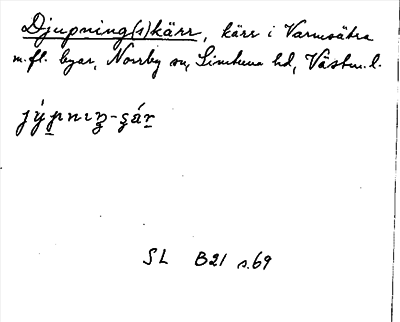 Djupning(s)kärr, kärr i Varmsätra
m.fl. byar, Norrby sn, Simtuna hd, Västm. l.
jy´pnıŋ-çár
SL B21 s.69